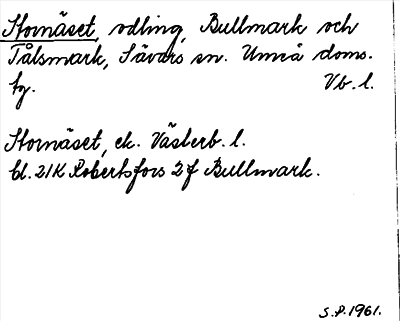 Stornäset, odling, Bullmark och
Tålsmark, Sävars sn. Umeå doms.
tg. Vb. l.
Stornäset, ek. Västerb. l.
bl. 21K Robertsfors 2f Bullmark.
S.P. 1961.